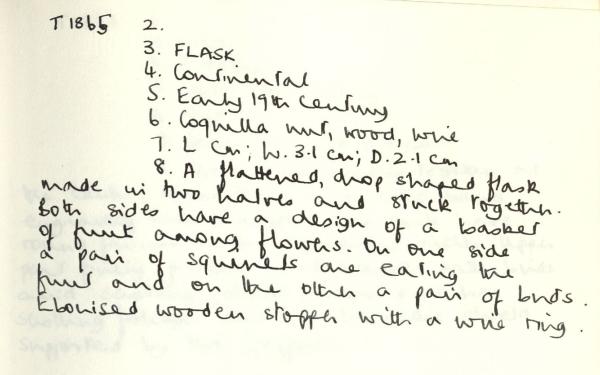 T1865 2.
3. FLASK
4. Continental
5. Early 19th century
6. Coquilla nut, wood, wire
7. L cm; W. 3.1 cm; D. 2.1 cm
8. A flattened, drop shaped flask
made in two halves and stuck together.
Both sides have a design of a basket
of fruit among flowers. On one side
a pair of squirrels are eating the
fruit and on the other a pair of birds.
Ebonised wooden stopper with a wire ring.